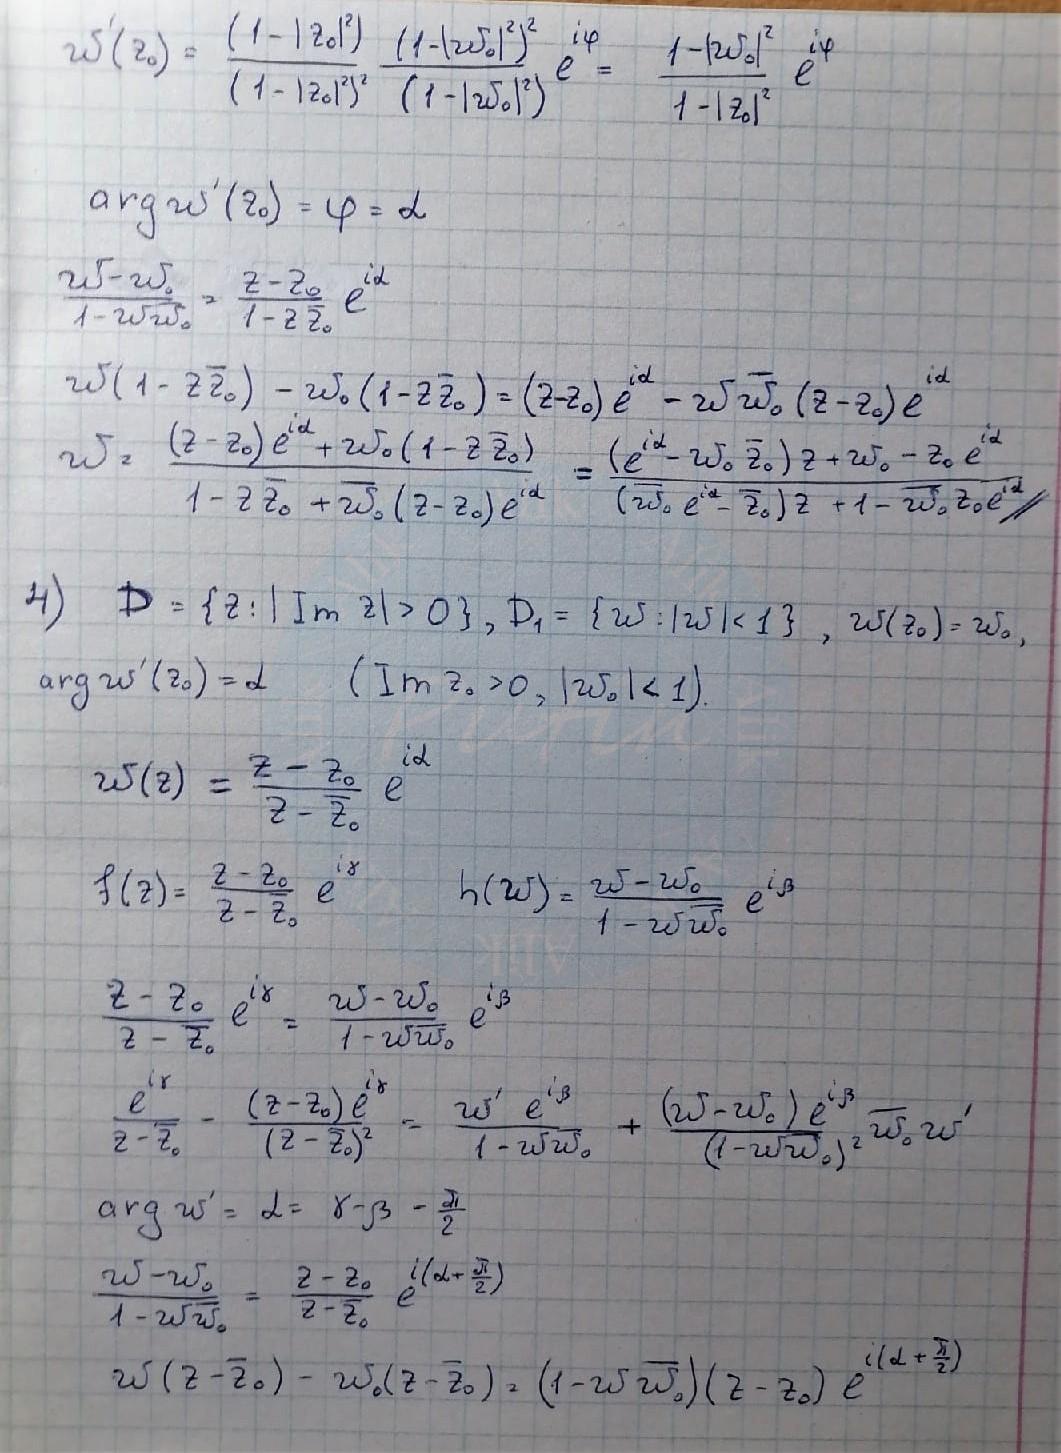 w'(z₀) = (1-|z₀|²)/(1-|z₀|²)² (1-|w₀|²)²/(1-|w₀|²) e^{iφ} = (1-|w₀|²)/(1-|z₀|²) e^{iφ}
arg w'(z₀) = φ = α
(w-w₀)/(1-w\overline{w}₀) = (z-z₀)/(1-z\overline{z}₀) e^{iα}
w(1-z\overline{z}₀) - w₀(1-z\overline{z}₀) = (z-z₀)e^{iα} - w\overline{w}₀(z-z₀)e^{iα}
w = ((z-z₀)e^{iα} + w₀(1-z\overline{z}₀))/(1-z\overline{z}₀ + \overline{w}₀(z-z₀)e^{iα}) = ((e^{iα} - w₀\overline{z}₀)z + w₀ - z₀e^{iα})/((\overline{w}₀e^{iα} - \overline{z}₀)z + 1 - \overline{w}₀z₀e^{iα}) //
4) D = {z: |Im z| > 0}, D₁ = {w: |w| < 1}, w(z₀) = w₀,
arg w'(z₀) = α (Im z₀ > 0, |w₀| < 1).
w(z) = (z-z₀)/(z-\overline{z}₀) e^{iα}
f(z) = (z-z₀)/(z-\overline{z}₀) e^{iγ} h(w) = (w-w₀)/(1-w\overline{w}₀) e^{iβ}
(z-z₀)/(z-\overline{z}₀) e^{iγ} = (w-w₀)/(1-w\overline{w}₀) e^{iβ}
e^{iγ}/(z-\overline{z}₀) - (z-z₀)e^{iγ}/(z-\overline{z}₀)² = w' e^{iβ}/(1-w\overline{w}₀) + (w-w₀)e^{iβ}/(1-w\overline{w}₀)² \overline{w}₀ w'
arg w' = α = γ-β - π/2
(w-w₀)/(1-w\overline{w}₀) = (z-z₀)/(z-\overline{z}₀) e^{i(α+π/2)}
w(z-\overline{z}₀) - w₀(z-\overline{z}₀) = (1-w\overline{w}₀)(z-z₀) e^{i(α+π/2)}